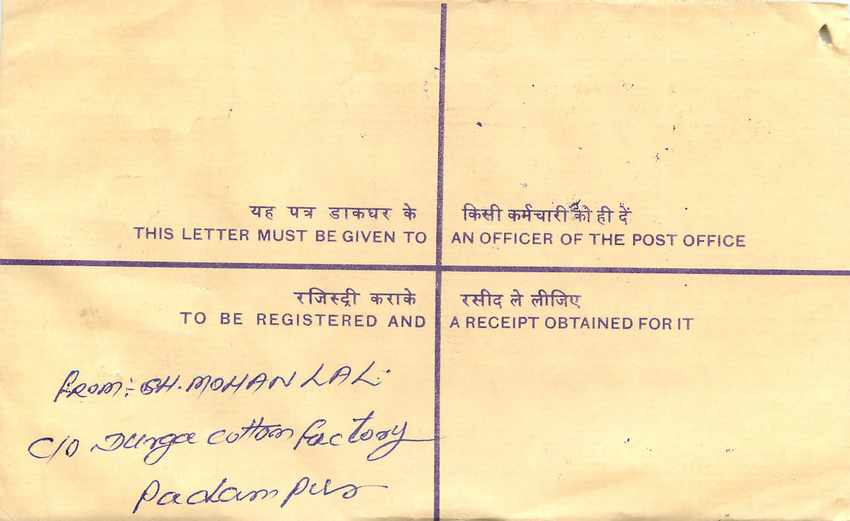 यह पत्र डाकघर के किसी कर्मचारी को ही दें
THIS LETTER MUST BE GIVEN TO AN OFFICER OF THE POST OFFICE
रजिस्ट्री कराके रसीद ले लीजिए
TO BE REGISTERED AND A RECEIPT OBTAINED FOR IT
FROM:- SH. MOHAN LAL.
C/O Durga cotton factory
Padampur